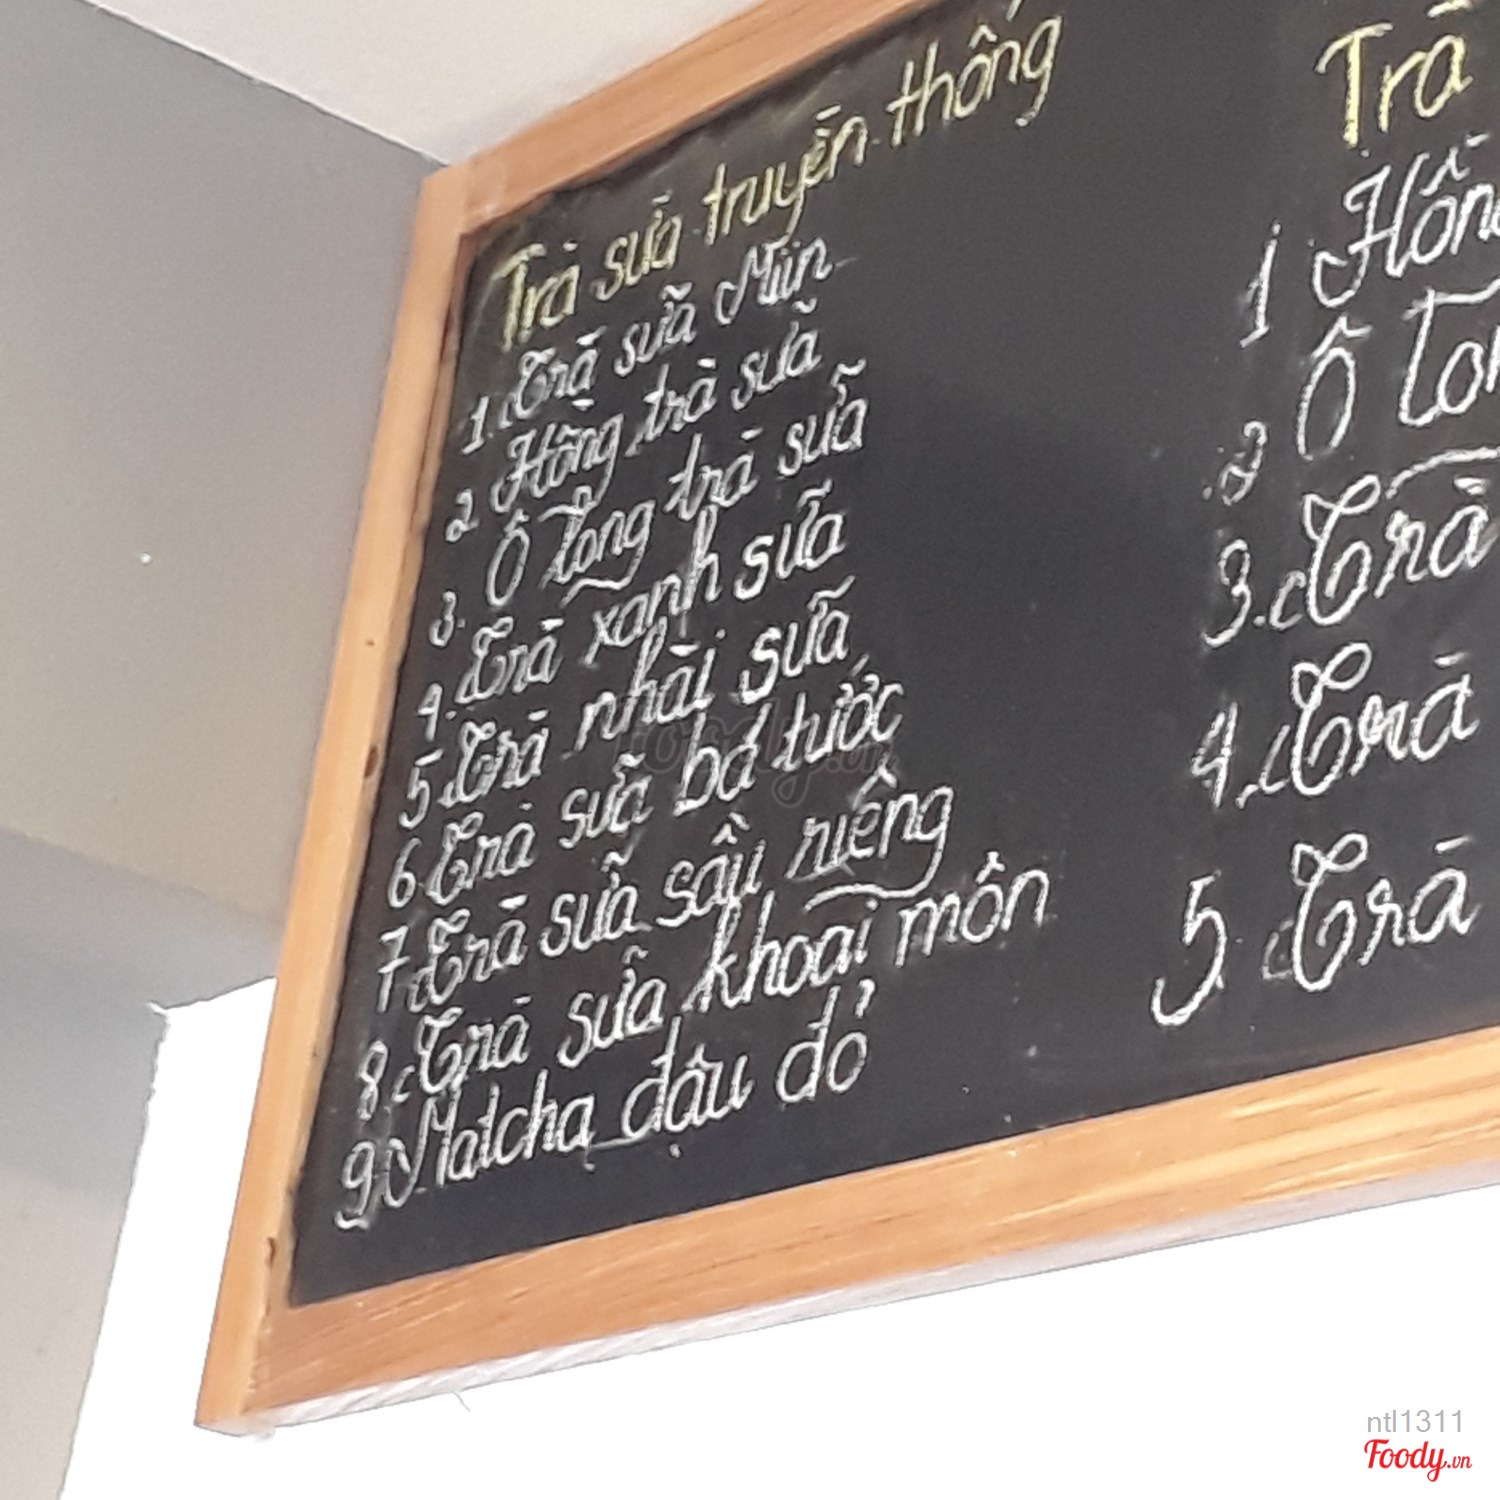 Trà sữa truyền thống
1. Trà sữa Miin
2 Hồng trà sữa
3. Ô long trà sữa
4. Trà xanh sữa
5. Trà nhài sữa
6 Trà sữa bá tước
7. Trà sữa sầu riêng
8. Trà sữa khoai môn
9 Matcha đậu đỏ
Trà
1 Hồng
2 Ô lon
3. Trà
4. Trà
5. Trà
Foody.vn
ntl1311
Foody.vn